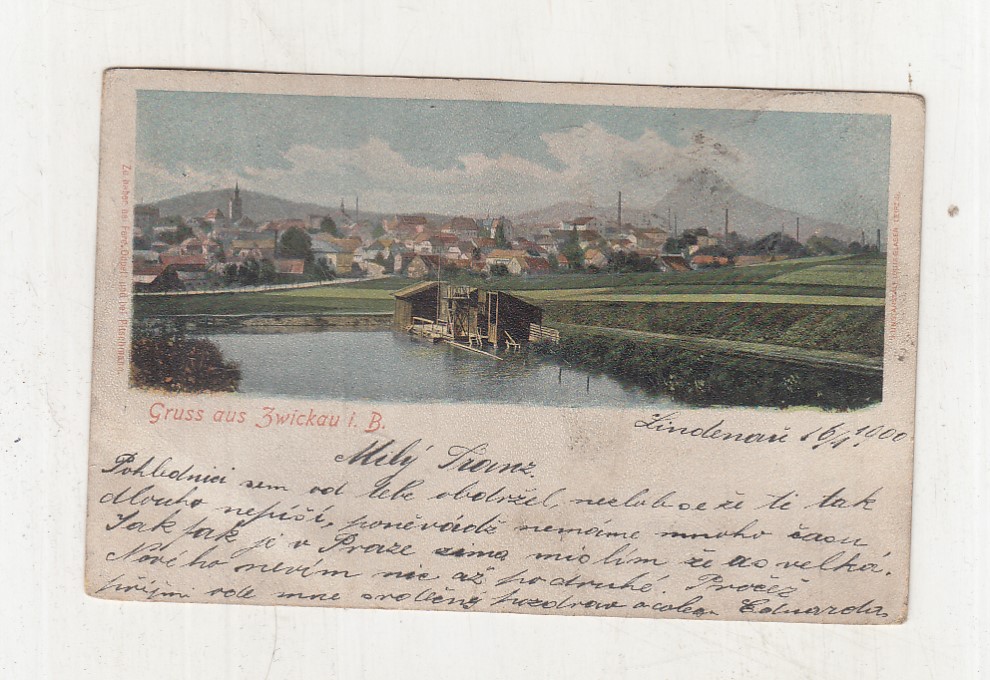 Gruss aus Zwickau i. B.
Lindenau 16/1. 1900
Milý Franz.
Pohlednici sem od tebe obdržel, nezlob se že ti tak
dlouho nepíši, poněvádž nemáme mnoho času
Jak pak je v Praze zima mislím že as velká.
Nového nevím nic až po druhé. Pročež
přijm ode mne srdečný pozdrav a Eduarda